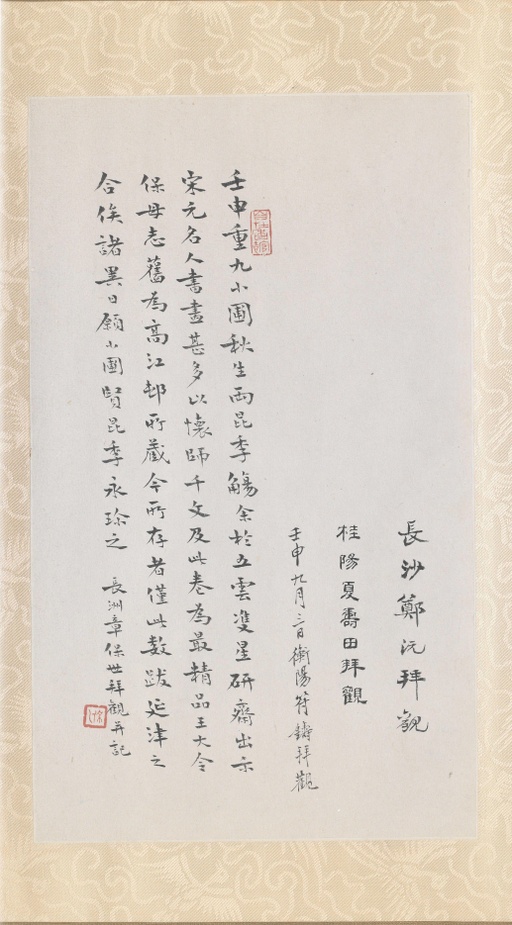 長沙鄭沅拜觀
桂陽夏壽田拜觀
壬申九月三日衡陽符鑄拜觀
壬申重九小圃秋生兩昆季觴余於五雲雙星研齋出示
宋元名人書畫甚多以懷師千文及此卷為最精品王大令
保母志舊為高江邨所藏今所存者僅此數跋延津之
合俟諸異日願小圃賢昆季永珍之
長洲章保世拜觀并記